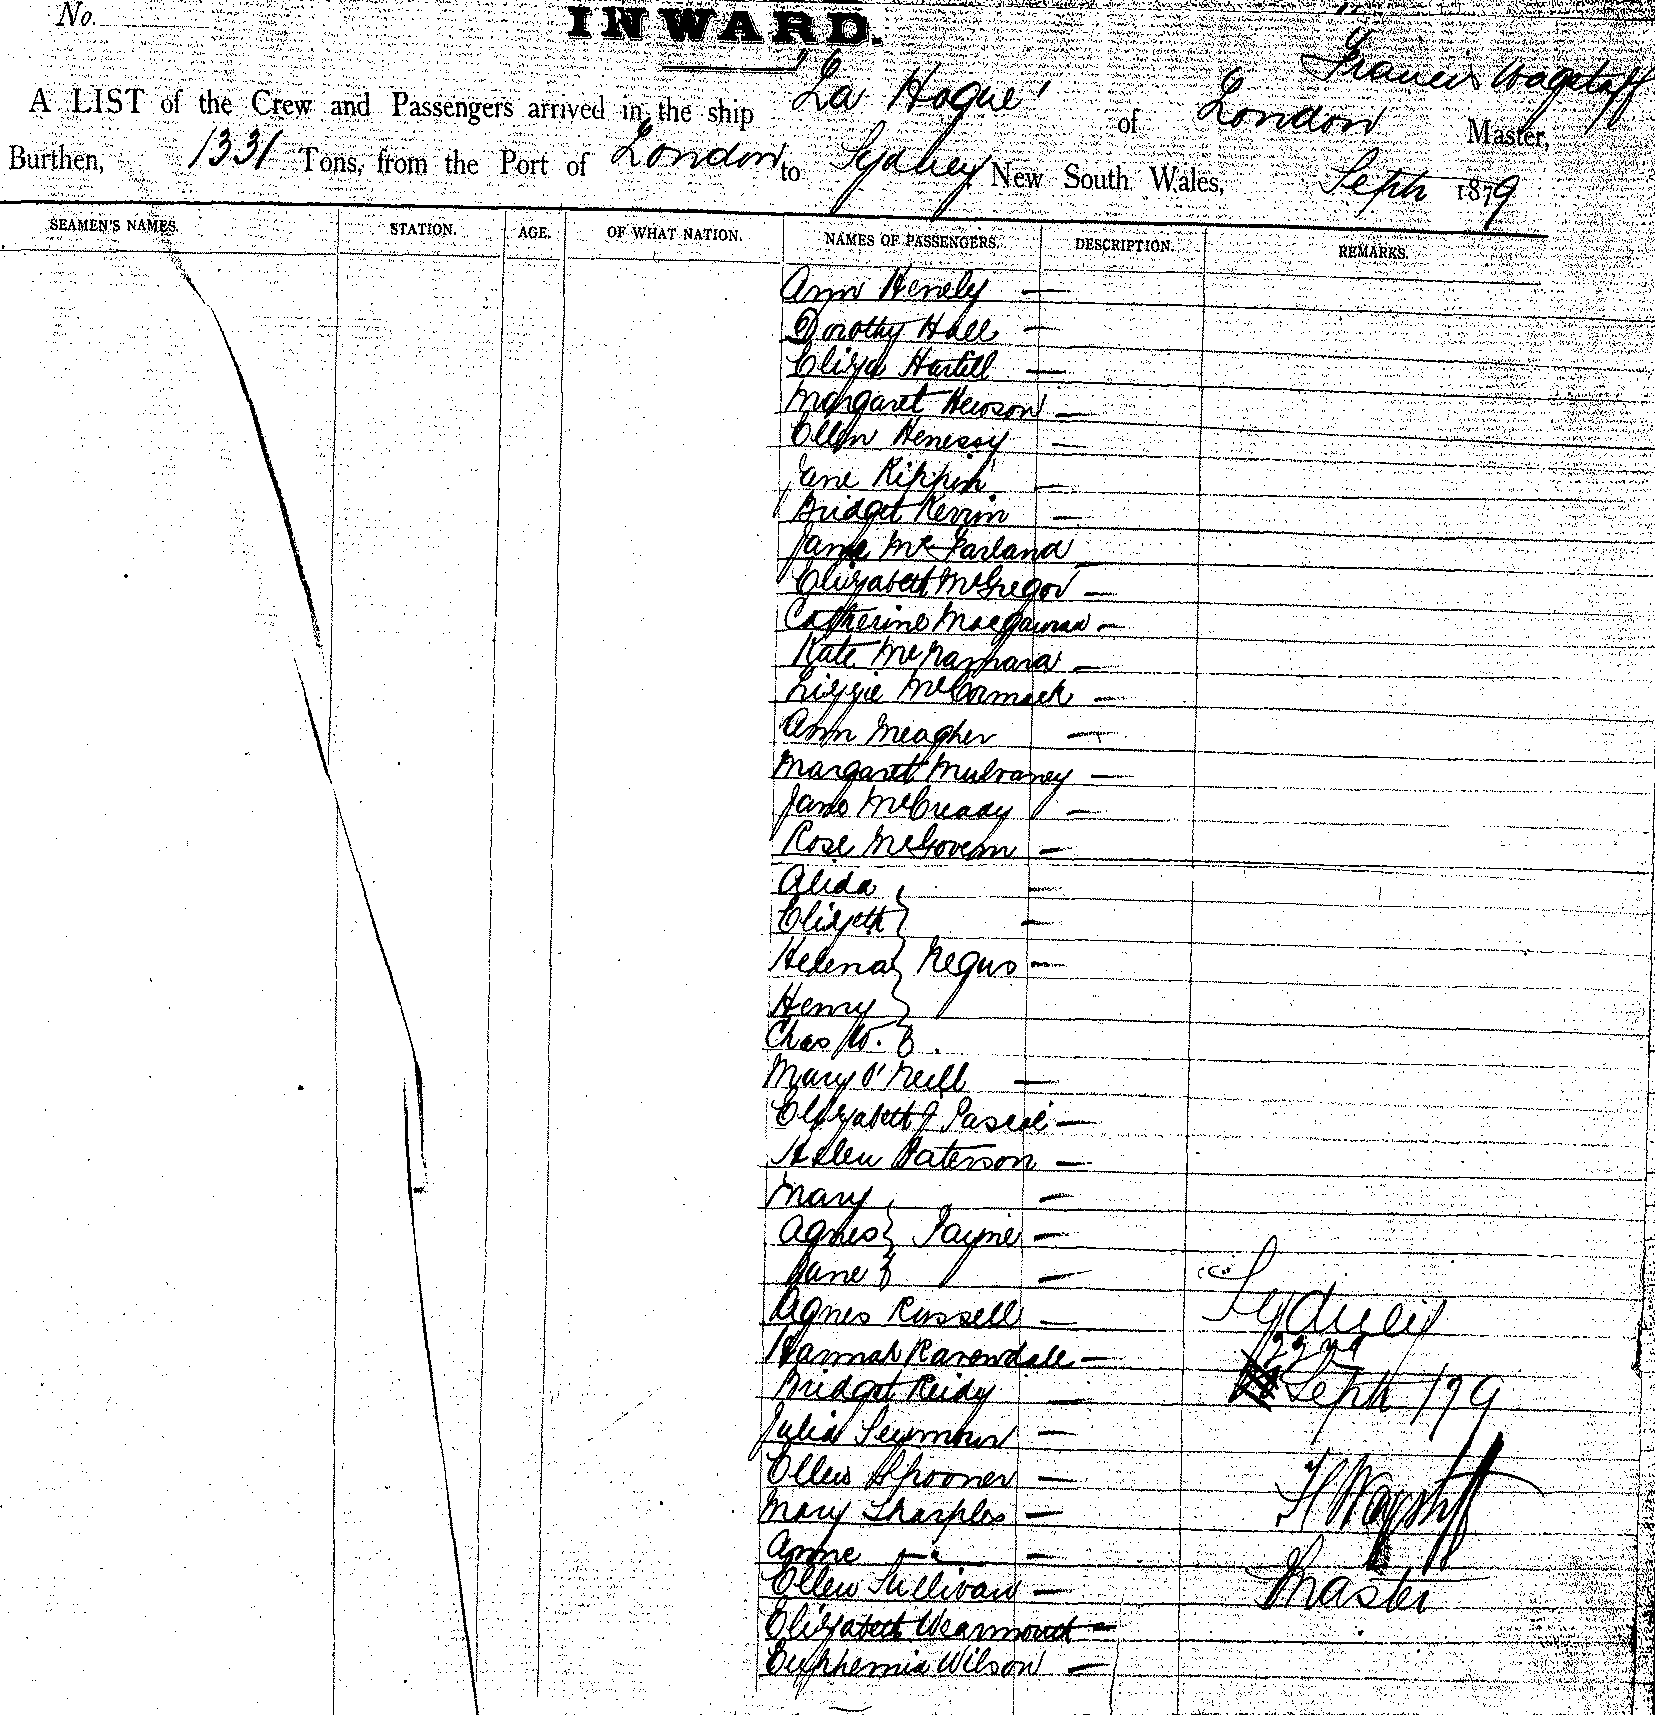 No.
INWARD.
A LIST of the Crew and Passengers arrived in the ship 'La Hogue' of London Francis Wagstaff Master,
Burthen, 1331 Tons, from the Port of London to Sydney New South Wales, Septr 1879
SEAMEN'S NAMES. STATION. AGE. OF WHAT NATION. NAMES OF PASSENGERS. DESCRIPTION. REMARKS.
Ann Henely —
Dorothy Hall —
Eliza Hartill —
Margaret Hewson —
Ellen Henessy —
Jane Kippin —
Bridget Kerrin —
Jane McFarland
Elizabeth McGregor —
Catherine —
Kate McNamara —
Lizzie McCormack —
Ann Meagher —
Margaret Mulvaney —
Jane McCready —
Rose McGovern —
Alida —
Elizth —
Helena } Negus —
Henry
Chas W.
Mary O'Neill —
Elizabeth J Pascoe —
Helen Paterson —
Mary —
Agnes } Payne —
Jane —
Agnes Russell —
Hannah Ravendale —
Bridget Reidy —
Julia Seymour —
Ellen Spooner —
Mary Sharples —
Anne —"— —
Ellen Sullivan —
Elizabeth Wearmouth —
Euphemia Wilson —
Sydney
22nd
Septr /79
F Wagstaff
Master